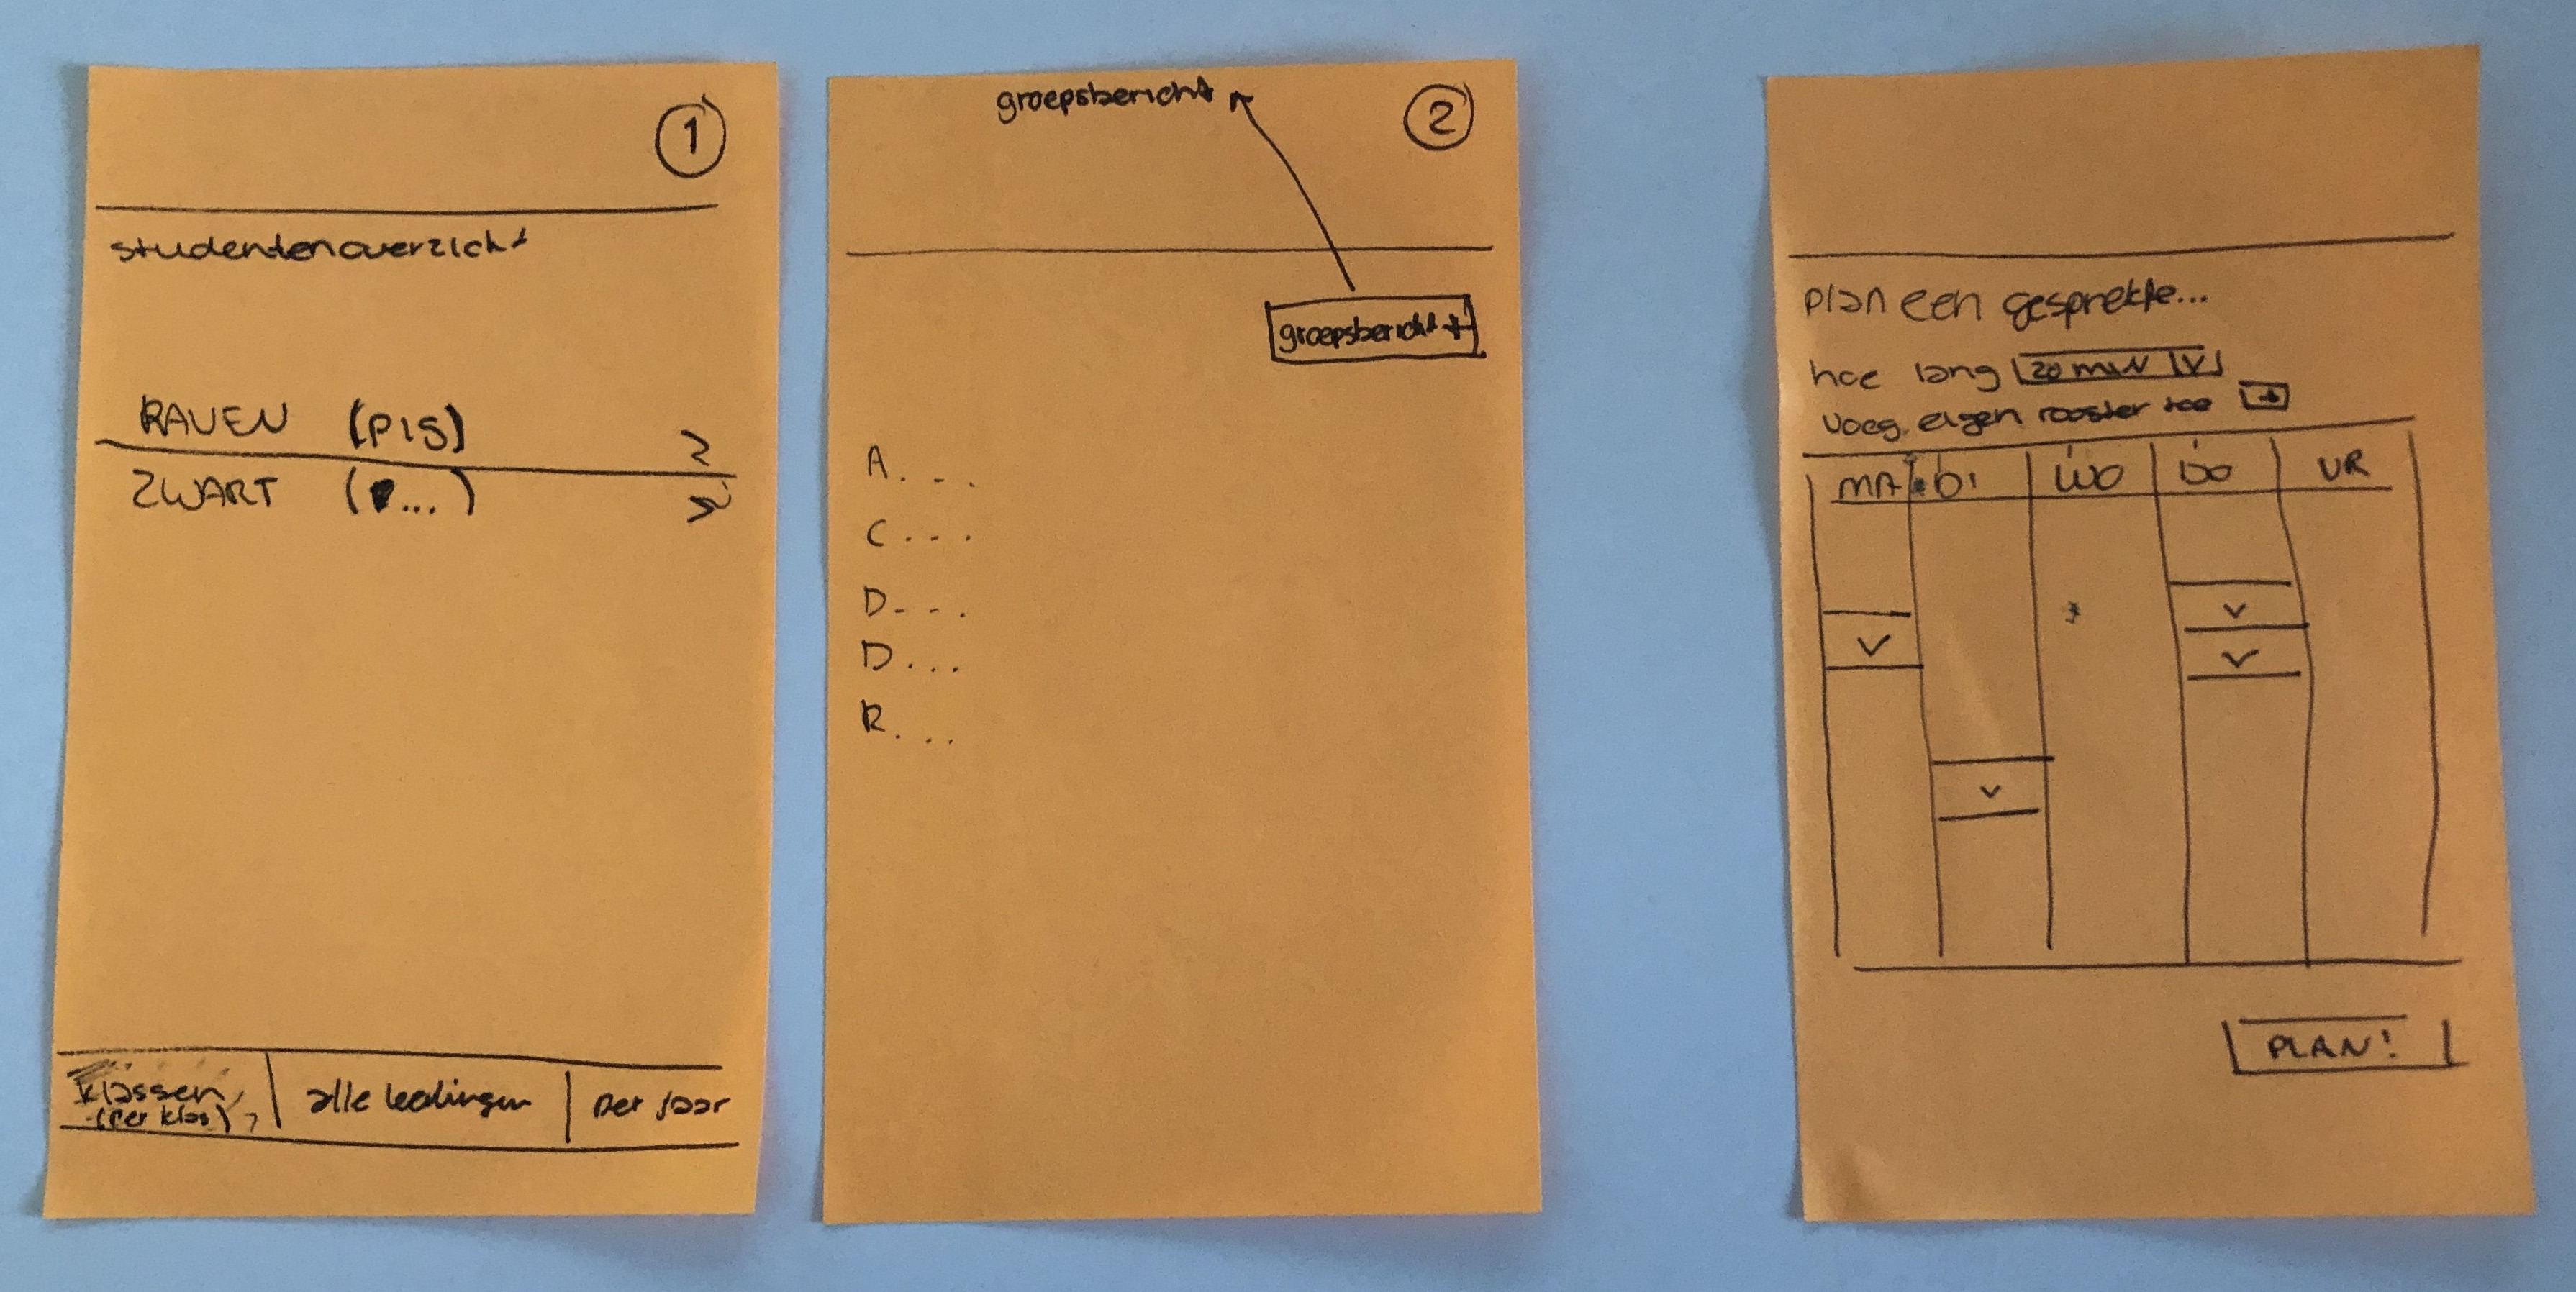 1
studentenoverzicht
RAVEN (PIS) >
ZWART (P...) >
klassen
(per klas)
alle leerlingen
per jaar
groepsbericht
2
groepsbericht +
A...
C...
D...
D...
R...
plan een gesprekje...
hoe lang 20 min V
voeg eigen rooster toe →
MA DI WO DO VR
PLAN!